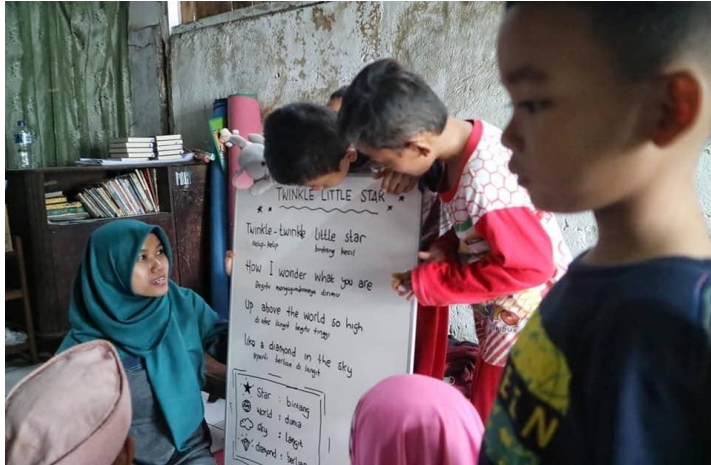 TWINKLE LITTLE STAR
Twinkle-twinkle little star
kelap-kelip bintang kecil
How I wonder what you are
Begitu mengagumkannya dirimu
Up above the world so high
di atas langit begitu tinggi
Like a diamond in the sky
seperti berlian di langit
Star : bintang
World : dunia
Sky : langit
diamond : berlian